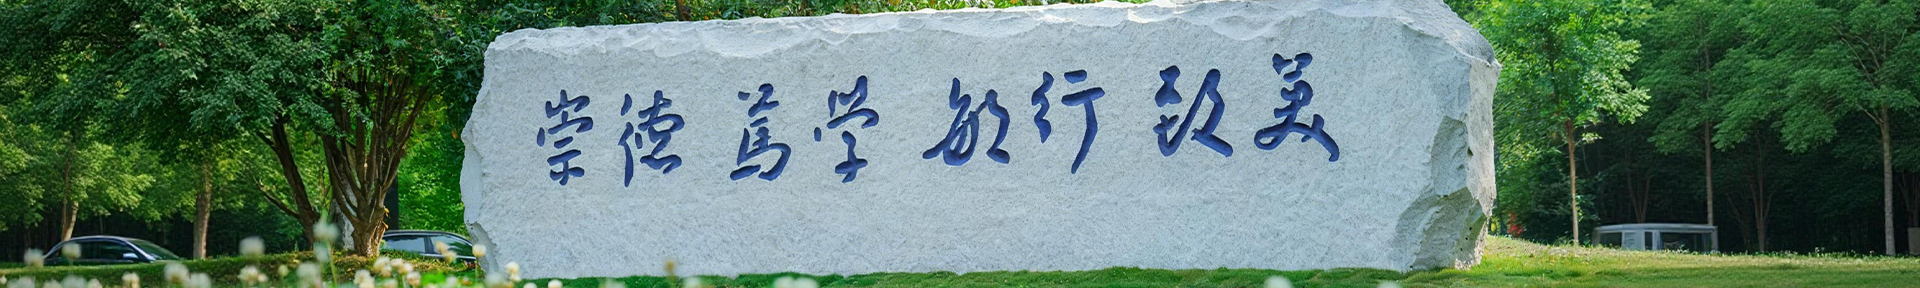 崇德 笃学 敏行 致美